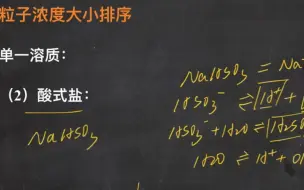 粒子浓度大小排序
单一溶质：
（2）酸式盐：
NaHSO3
NaHSO3 = Na
HSO3⁻ ⇌ H⁺ +
HSO3⁻ + H2O ⇌ H2SO
H2O ⇌ H⁺ + OH